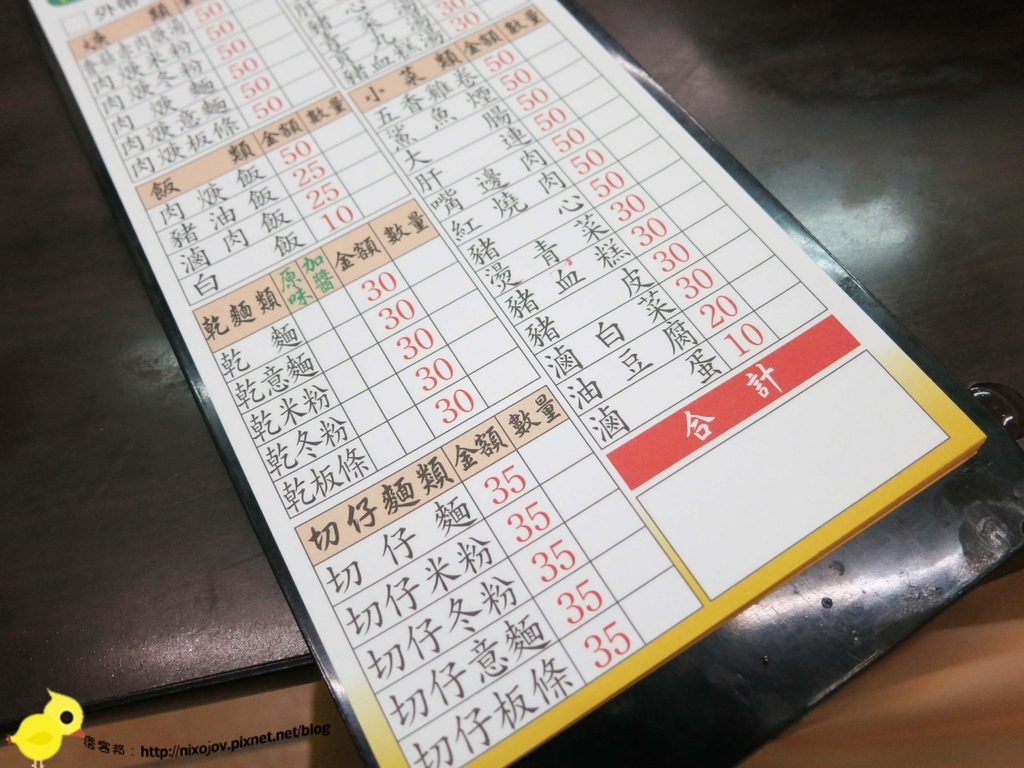 外帶
類 金
50
肉焿米粉 50
肉焿冬粉 50
肉焿麵 50
肉焿意麵 50
肉焿板條 50
飯類 金額 數量
肉焿飯 50
豬油飯 25
滷肉飯 25
白飯 10
乾麵類 原味 加醬 金額 數量
乾麵 30
乾意麵 30
乾米粉 30
乾冬粉 30
乾板條 30
切仔麵類 金額 數量
切仔麵 35
切仔米粉 35
切仔冬粉 35
切仔意麵 35
切仔板條 35
30
豬血 湯 30
小菜類 金額 數量
五香雞卷 50
鯊魚煙 50
大腸 50
肝連 50
嘴邊肉 50
紅燒肉 50
豬心 50
燙青菜 30
豬血糕 30
豬皮 30
滷白菜 30
油豆腐 20
滷蛋 10
合計
痞客邦：http://nixojov.pixnet.net/blog